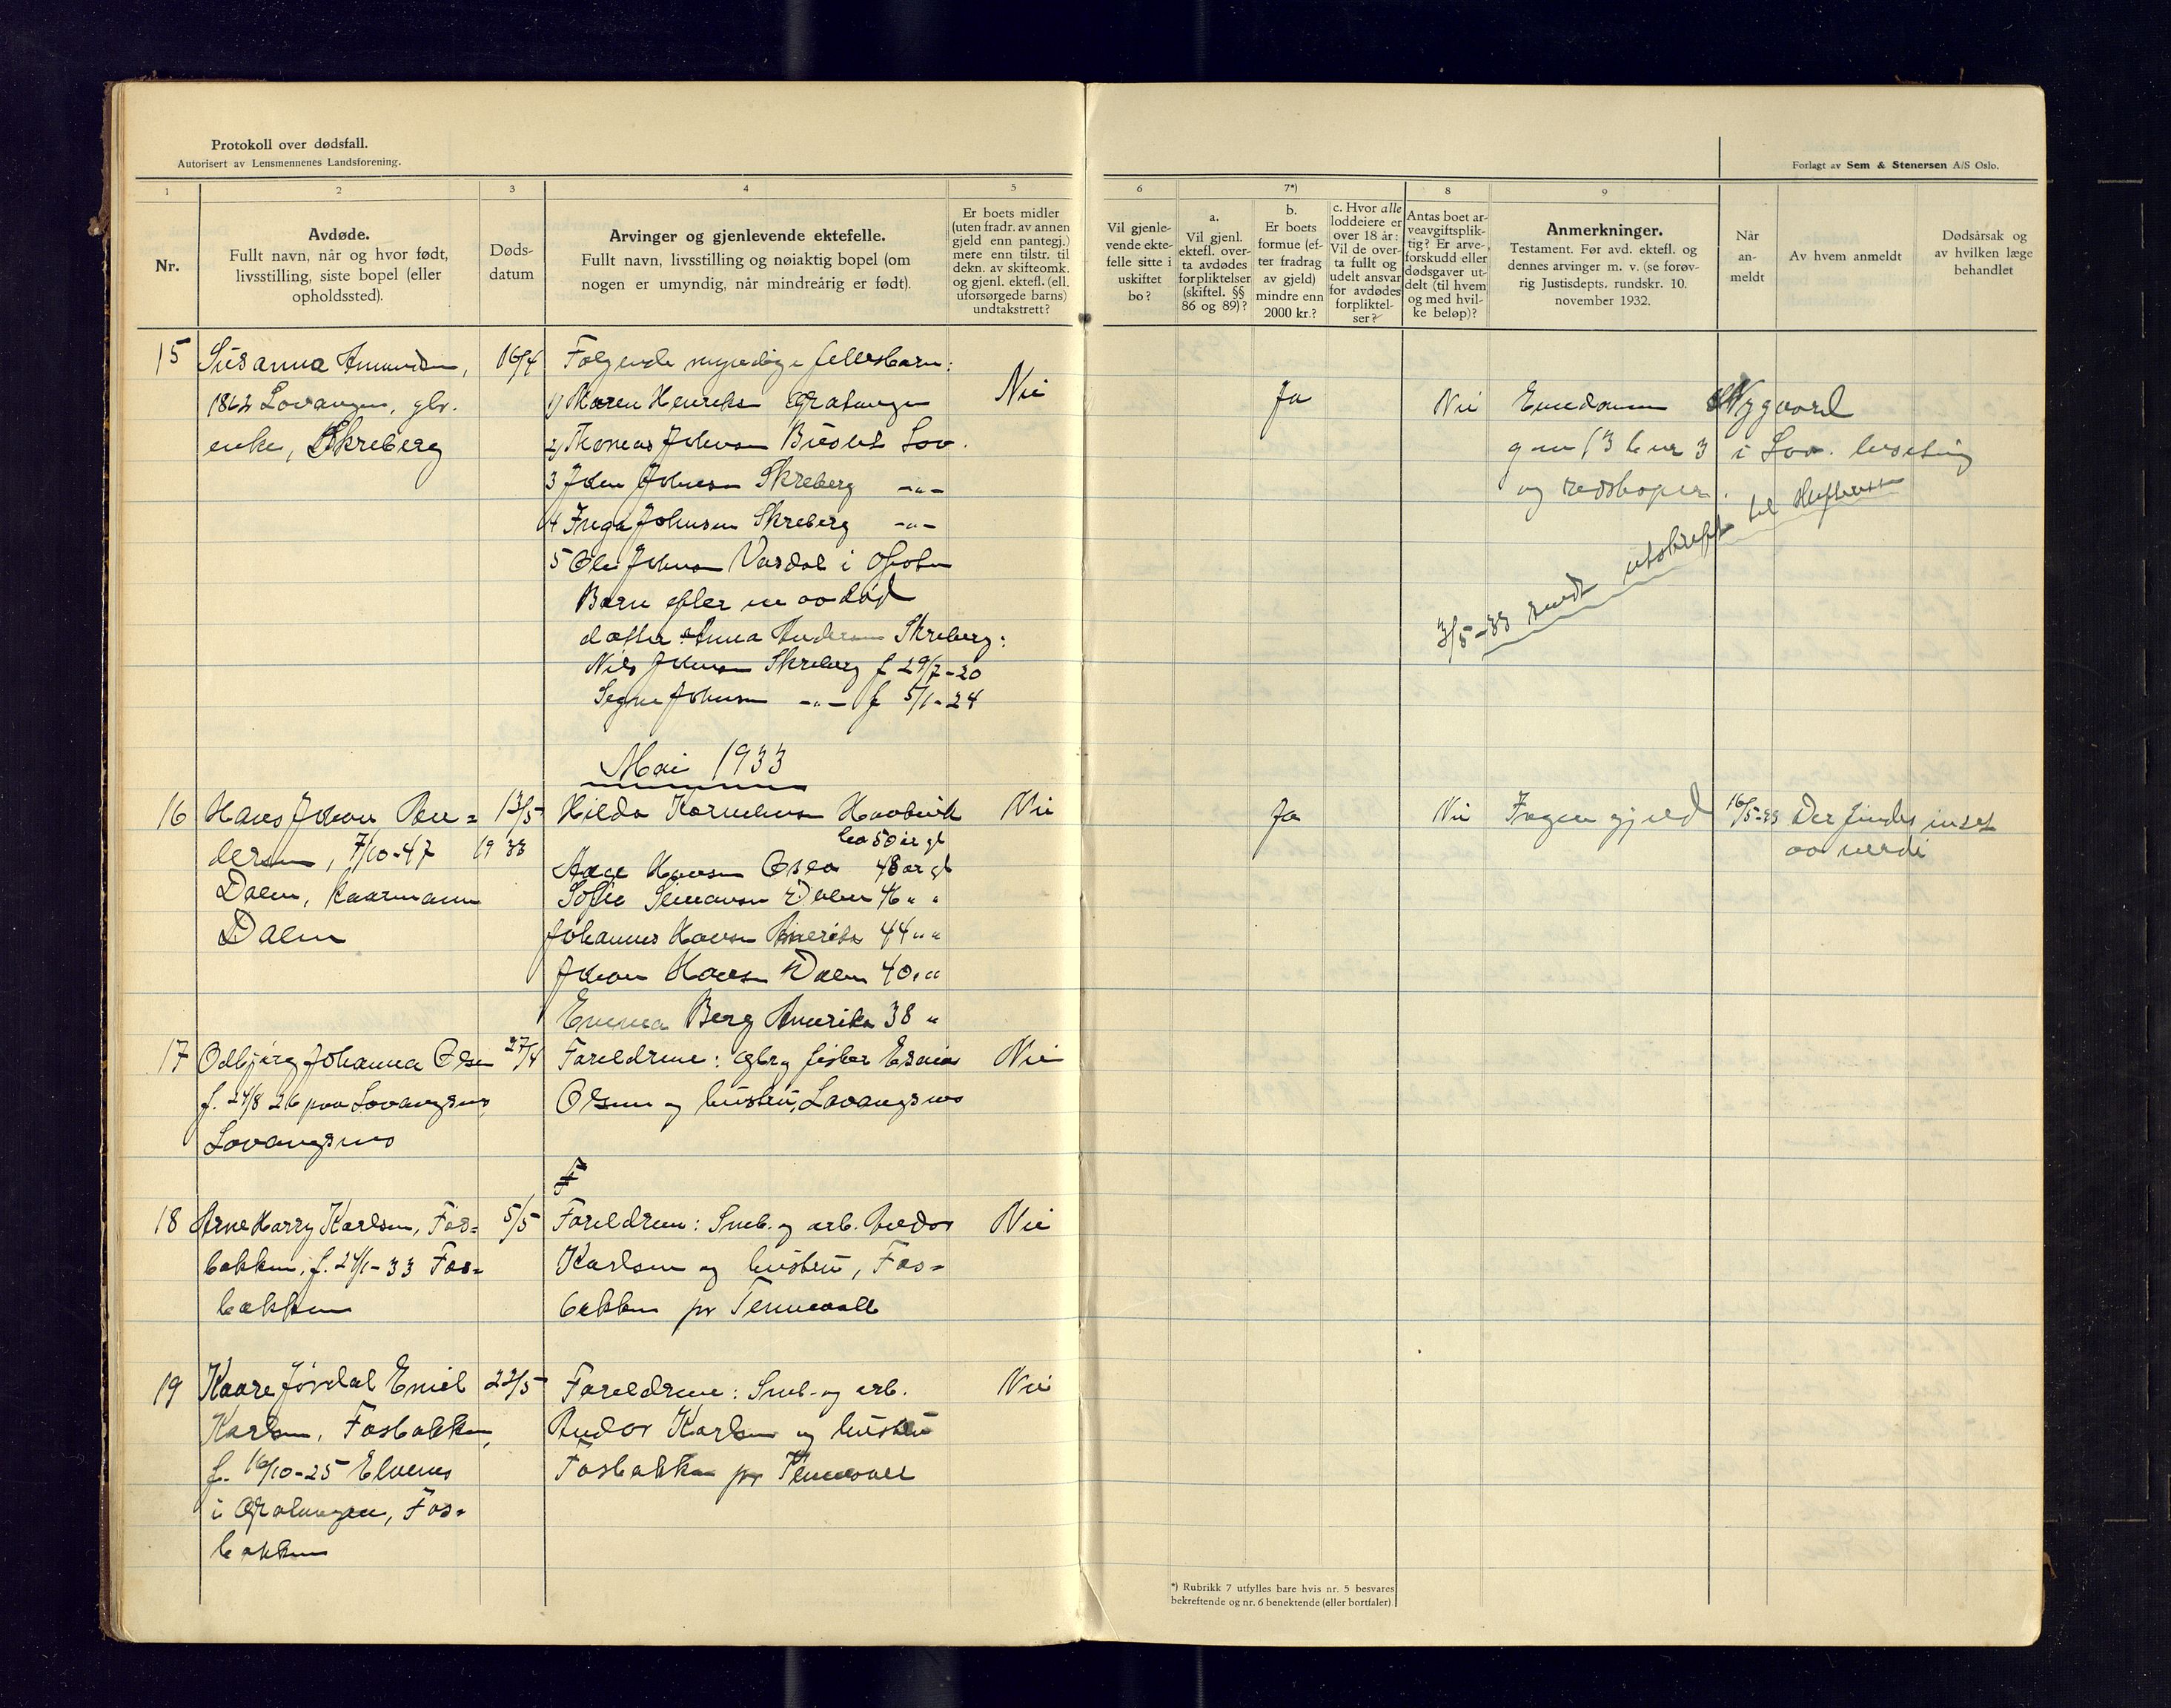 Protokoll over dødsfall.
Autorisert av Lensmennenes Landsforening.
Forlagt av Sem & Stenersen A/S Oslo.
1
2
3
4
5
6
7*)
8
9
Nr.
Avdøde.
Fullt navn, når og hvor født,
livsstilling, siste bopel (eller
opholdssted).
Døds-
datum
Arvinger og gjenlevende ektefelle.
Fullt navn, livsstilling og nøiaktig bopel (om
nogen er umyndig, når mindreårig er født).
Er boets midler
(uten fradr. av annen
gjeld enn pantegj.)
mere enn tilstr. til
dekn. av skifteomk.
og gjenl. ektefl. (ell.
uforsørgede barns)
undtakstrett?
Vil gjenle-
vende ekte-
felle sitte i
uskiftet
bo?
a.
Vil gjenl.
ektefl. over-
ta avdødes
forpliktelser
(skiftel. §§
86 og 89)?
b.
Er boets
formue (ef-
ter fradrag
av gjeld)
mindre enn
2000 kr.?
c. Hvor alle
loddeiere er
over 18 år:
Vil de over-
ta fullt og
udelt ansvar
for avdødes
forpliktel-
ser?
Antas boet ar-
veavgiftsplik-
tig? Er arve-
forskudd eller
dødsgaver ut-
delt (til hvem
og med hvil-
ke beløp)?
Anmerkninger.
Testament. Før avd. ektefl. og
dennes arvinger m. v. (se forøv-
rig Justisdepts. rundskr. 10.
november 1932.
Når
an-
meldt
Av hvem anmeldt
Dødsårsak og
av hvilken læge
behandlet
15 Susanna Amundsen, 16/4 Følgende myndige fellesbarn:
1862 Lavangen, gbr. 1) Maren Henriksen Gratangen Nei Ja Nei Eiendommen Nygaard
enke, Skreberg 2) Thomas Johnsen Lav. gnr 13 bnr 3 i Lav. besetning
3 John Johnsen Skreberg -"- og redskaper.
4 Inga Johnsen Skreberg -"-
5 Ole Johnsen i Ofoten
3/5-33 sendt utskrift til skifterett
Barn efter en avdød
datter Anna Andersen Skreberg:
Nils Johnsen Skreberg f 29/7-20
Signe Johnsen -"- f 5/1-24
Mai 1933
16 Hans Johan Peder= 13/5 Hilda Korneliussen Nei Ja Nei Ingen gjeld 16/5-33 Der findes intet
dersen, 7/10-47 1933 ca 50 år gl av verdi
Aage Hansen Oslo 48 år gl
Dalen, kaarmann Sofie Simonsen Dalen 46 " "
Dalen Johannes Hansen Amerika 44 " "
Johan Hansen Dalen 40 " "
Emma Berg Amerika 38 "
17 Odbjørg Johanna Olsen 27/4 Foreldrene: gbr og fisker Esaias Nei
f. 24/8 26 paa Lavangsnes Olsen og hustru, Lavangsnes
Lavangsnes
F
18 Arne Harry Karlsen, Fos= 5/5 Foreldrene: Smb. og arb. Andor Nei
bakken, f. 24/1-33 Fos= Karlsen og hustru, Fos=
bakken bakken pr Tennevoll
19 Kaare Jørdal Emil 22/5 Foreldrene: Smb. og arb. Nei
Karlsen, Fosbakken, Andor Karlsen og hustru
f. 16/10-25 Elvenes Fosbakken pr Tennevoll
i Gratangen, Fos-
bakken
*) Rubrikk 7 utfylles bare hvis nr. 5 besvares
bekreftende og nr. 6 benektende (eller bortfaler)